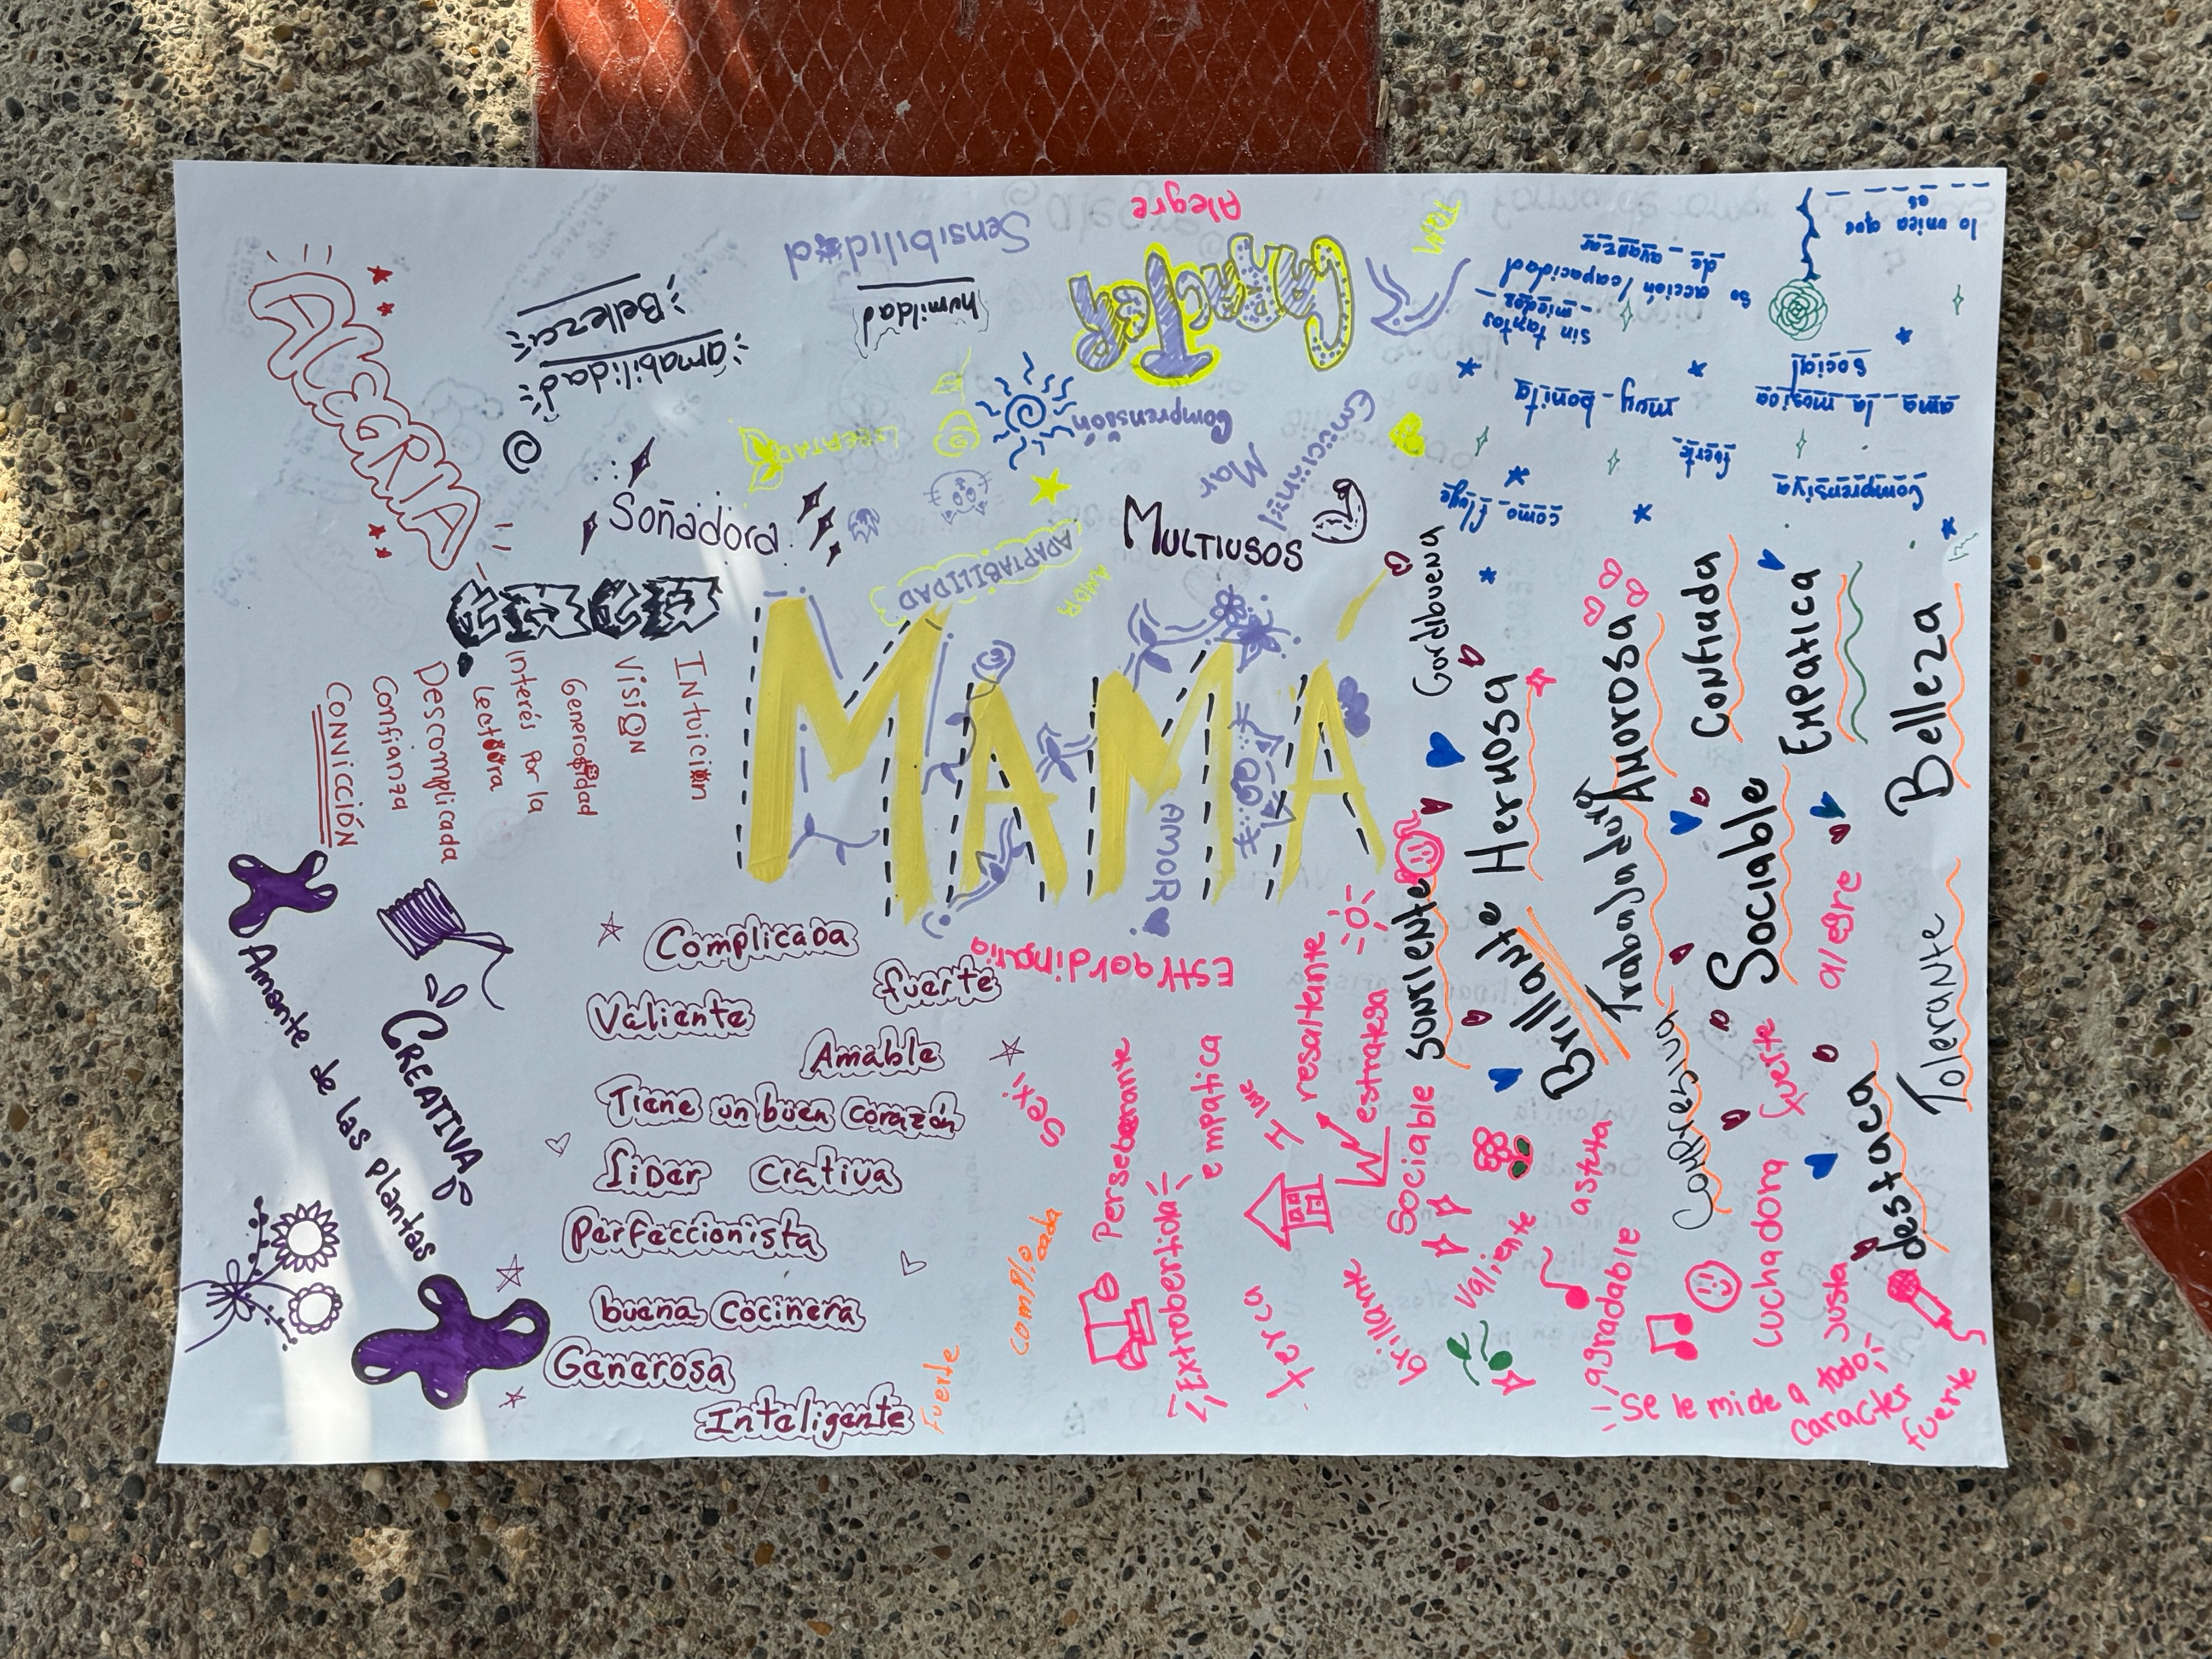 MAMÁ
AMOR
ALEGRIA
Belleza
amabilidad
Sensibilidad
humildad
Alegre
CARácTER
Comprensión
Mar
LIBERTAD
ADAPTABILIDAD
AMOR
Soñadora
MULTIUSOS
lo unica que
es
so acción/capacidad
de avanzar
sin tantos
miedos
muy bonita
ama la musica
social
fuerte
Comprensiva
como fluye
INtuición
VisióN
Generosidad
Interés por la
Lectura
Descomplicada
Confianza
CONVICCIÓN
Amante de las plantas
CREATIVA
Complicada
fuerte
Valiente
Amable
Tiene un buen corazón
lider
Criativa
Perfeccionista
buena Cocinera
Generosa
Inteligente
fuerte
complicada
EStraordinaria
Sexi
Perseberante
Extrobertida
empatica
resaltante
estratesa
terca
brillante
Sociable
Valiente
astuta
agradable
luchadora
fuerte
alegre
Justa
Se le mide a todo
caracter
fuerte
Gordibuena
Hermosa
Sonriente
Brillante
Amorosa
Trabajadora
Confiada
Sociable
Compresiva
Empatica
destaca
Belleza
Tolerante